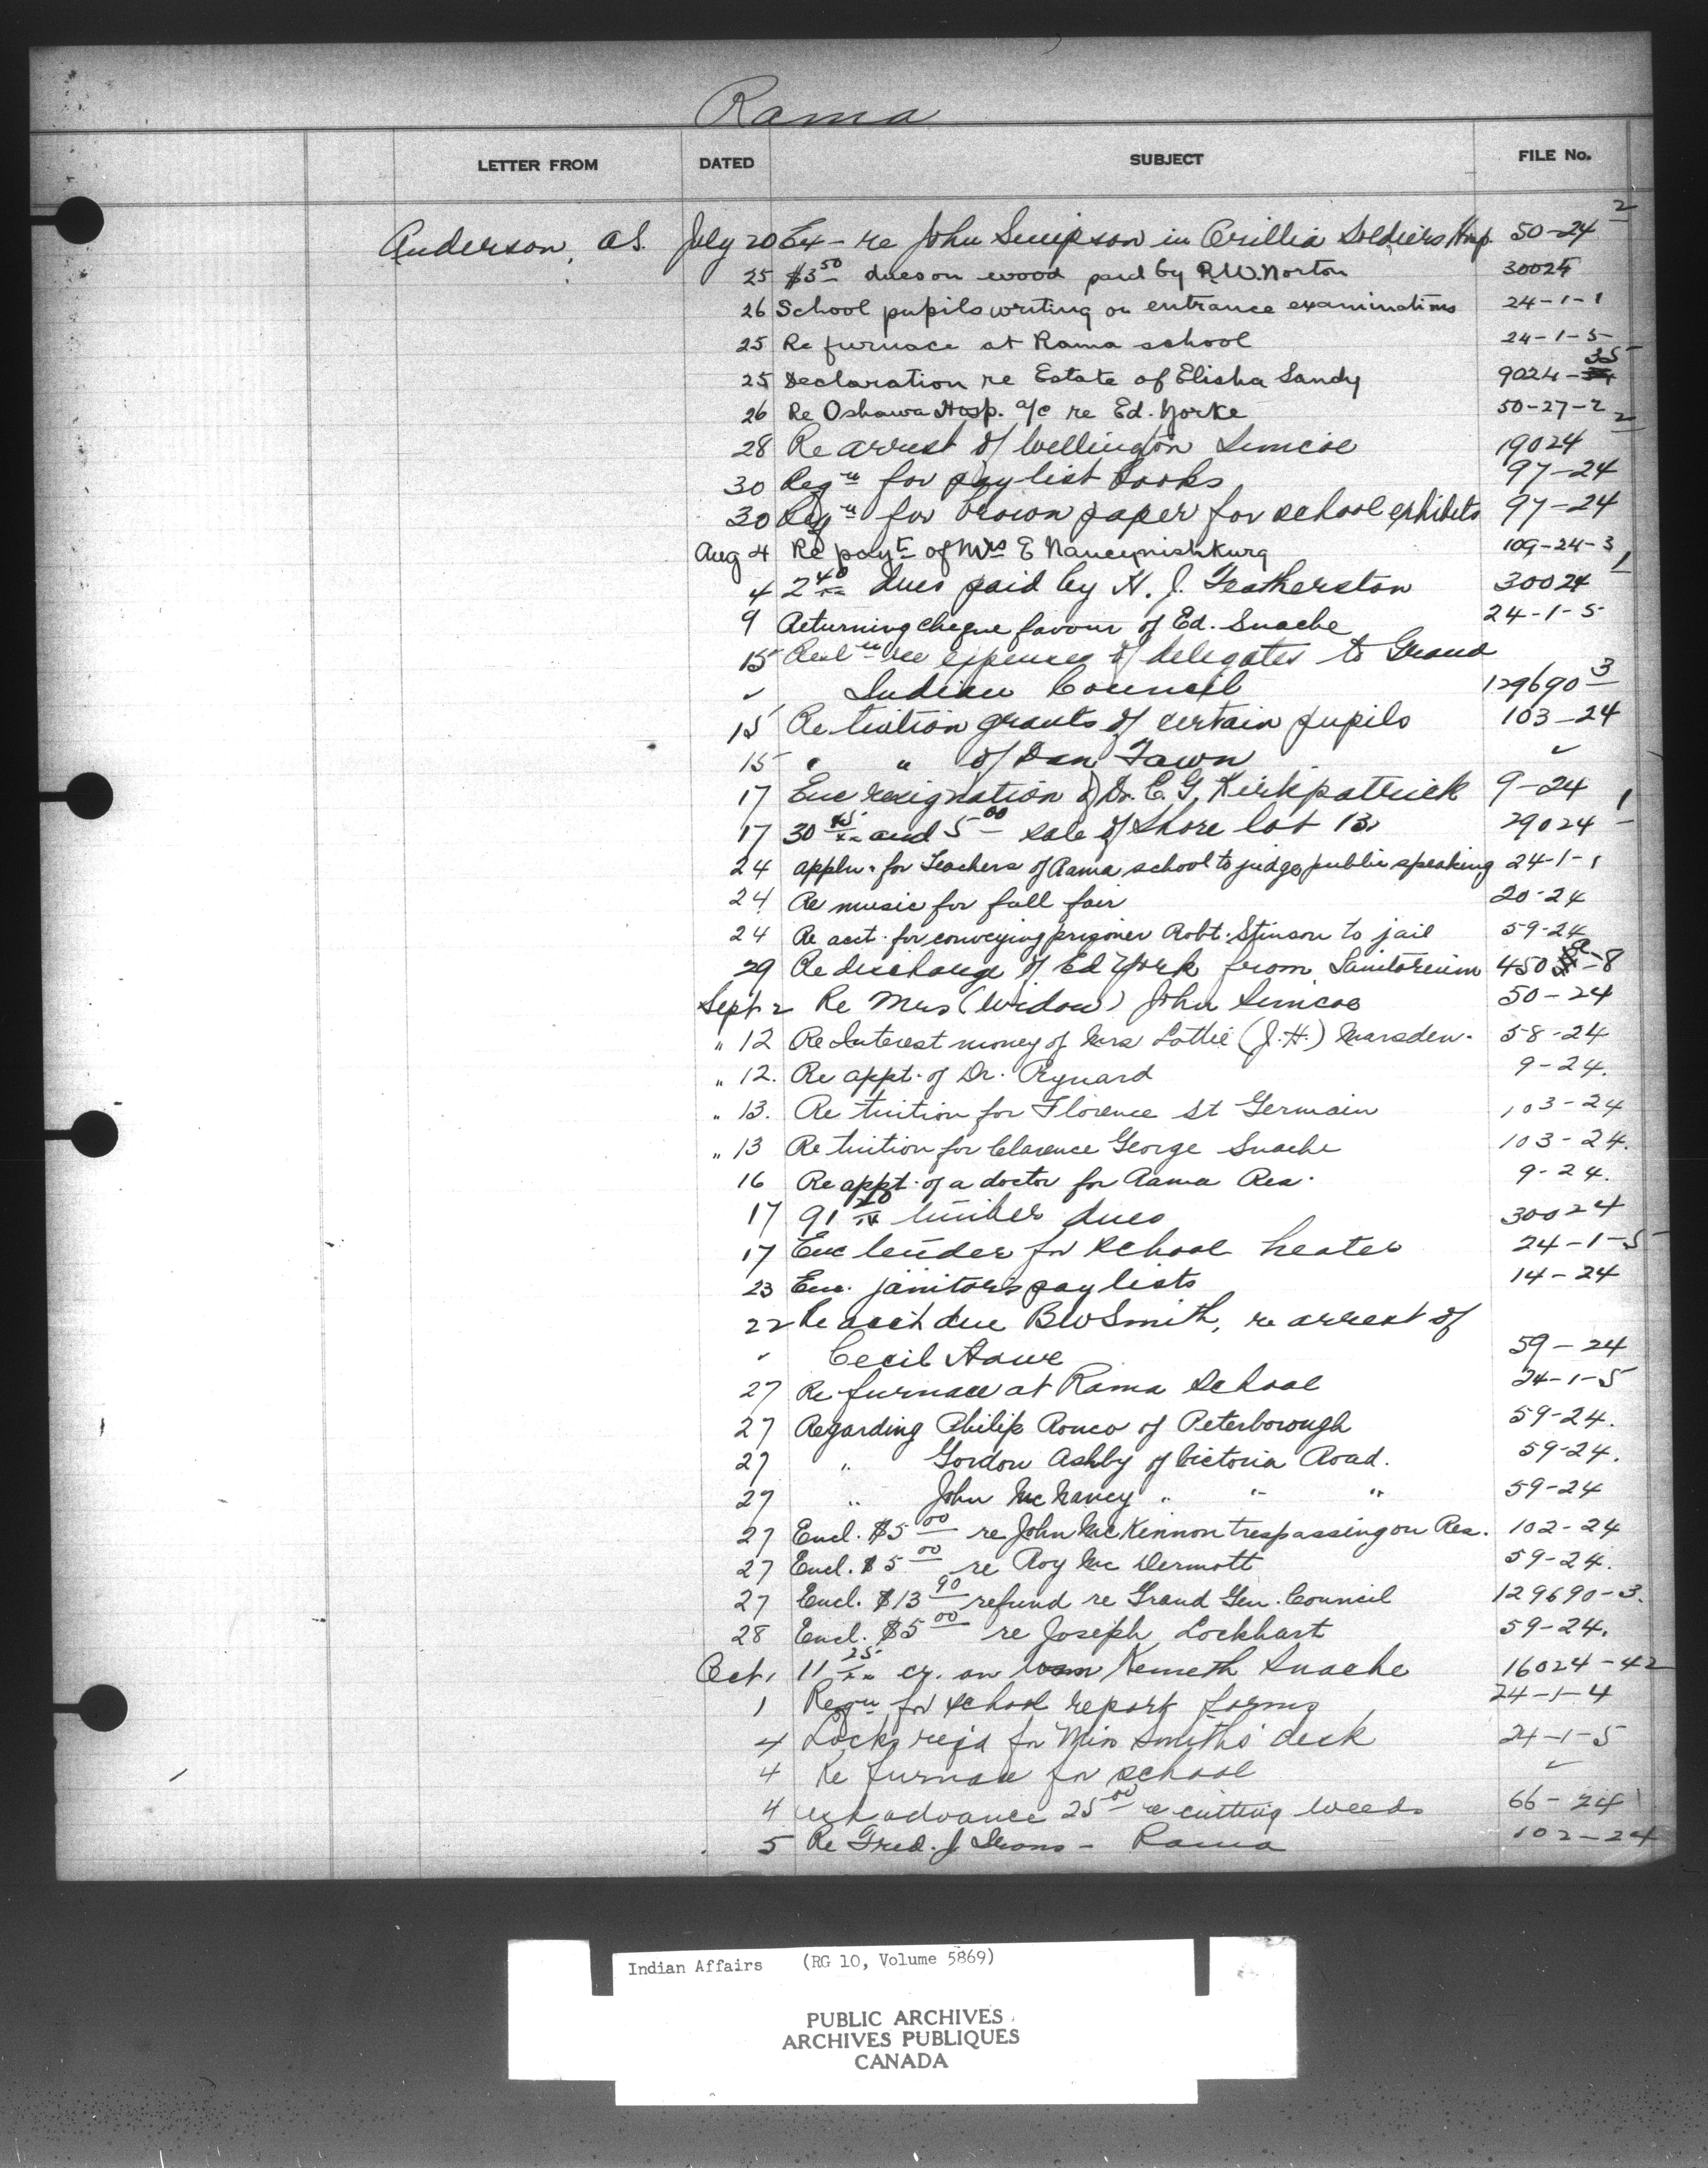 Rama
LETTER FROM DATED SUBJECT FILE No.
Anderson, A.S. July 20 - re John Simpson in Orillia Soldiers Hosp. 50-24 2
25 $3 50 dues on wood paid by R.W. Norton 30024
26 School pupils writing on entrance examinations 24-1-1
25 Re furnace at Rama school 24-1-5
25 Declaration re Estate of Elisha Sandy 9024-35
26 Re Oshawa Hosp. a/c re Ed. Yorke 50-27-2
28 Re arrest of Wellington Simcoe 19024 2
30 Reqn for paylist books 97-24
30 Reqn for brown paper for school exhibits 97-24
Aug 4 Re payt of Mrs E Nanceynishkung 109-24-3
4 2 40 dues paid by H. J. Featherston 30024 1
9 Returning cheque favour of Ed. Snache 24-1-5
15 Resln re expenses of delegates to Grand
" Indian Council 129690 3
15 Re tuition grants of certain pupils 103-24
15 " " of Dan Fawn "
17 Enc resignation of Dr. C. G. Kirkpatrick 9-24
17 30 and 5 00 sale of Shore lot 13 29024 1
24 appln. for Teachers of Rama school to judge public speaking 24-1-1
24 Re music for fall fair 20-24
24 Re acct. for conveying prisoner Robt. Stinson to jail 59-24
29 Re discharge of Ed York from Sanitorium 450-8
Sept 2 Re Mrs (Widow) John Simcoe 50-24
" 12 Re Interest money of Mrs Lottie (J.H.) Marsden. 58-24
" 12. Re appt. of Dr. Rynard 9-24.
" 13. Re tuition for Florence St Germain 103-24
" 13 Re tuition for Clarence George Snache 103-24.
16 Re appt. of a doctor for Rama Res. 9-24.
17 91 20 timber dues 30024
17 Enc tender for school heater 24-1-5
23 Enc. janitor's paylists 14-24
22 Re acct due BW Smith, re arrest of
" Cecil Hawe 59-24
27 Re furnace at Rama School 24-1-5
27 Regarding Philip Ronco of Peterborough 59-24.
27 " Gordon Ashby of Victoria Road. 59-24.
27 " John McNancy " " " 59-24
27 Encl. $5 00 re John McKinnon trespassing on Res. 102-24
27 Encl. $5 00 re Roy McDermott 59-24.
27 Encl. $13 90 refund re Grand Gen. Council 129690-3.
28 Encl. $5 00 re Joseph Lockhart 59-24.
Oct. 1 11 25 cr. on loan Kenneth Snache 16024-42
1 Reqn for school report forms 24-1-4
4 Locks req'd for Miss Smith's desk 24-1-5
4 Re furnace for school "
4 advance 25 00 re cutting weeds 66-24
5 Re Fred. J Irons - Rama 102-24
Indian Affairs (RG 10, Volume 5869)
PUBLIC ARCHIVES
ARCHIVES PUBLIQUES
CANADA